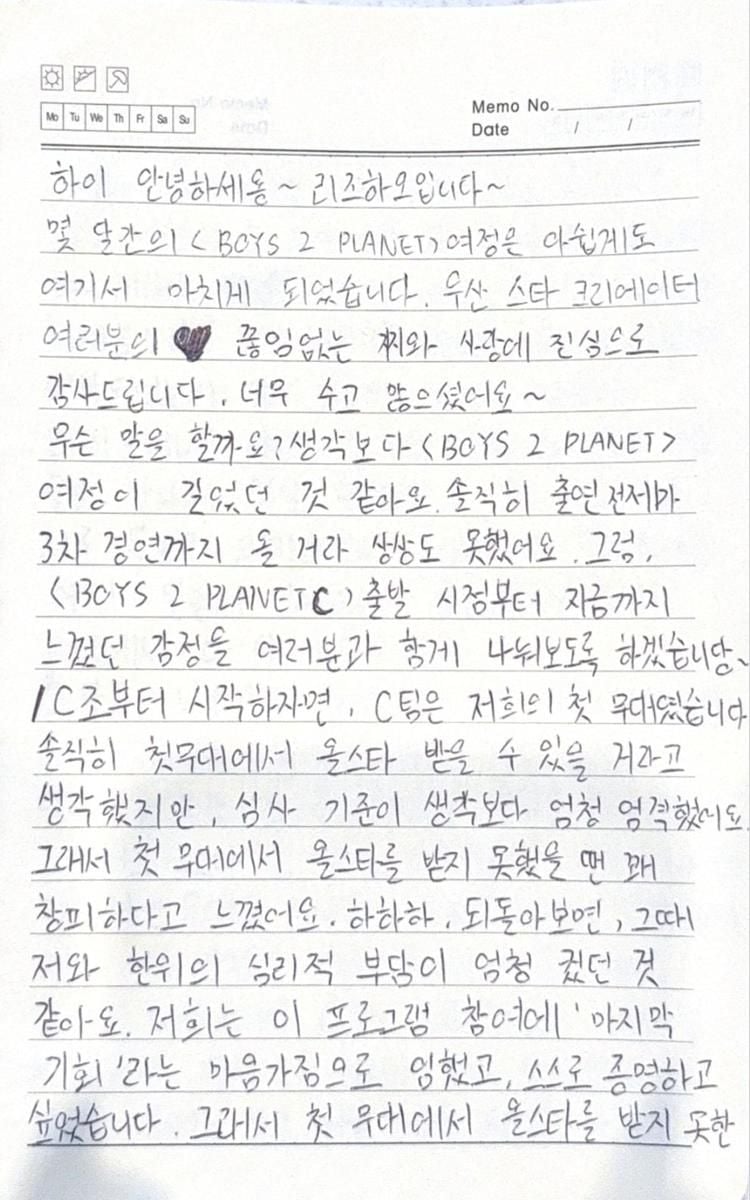 Mo Tu We Th Fr Sa Su
Memo No.
Date / /
하이 안녕하세용~ 리즈하오입니다~
몇 달간의 <BOYS 2 PLANET> 여정은 아쉽게도
여기서 마치게 되었습니다. 우선 스타 크리에이터
여러분의 ♥ 끊임없는 찌와 사랑에 진심으로
감사드립니다. 너무 수고 많으셨어요~
무슨 말을 할까요? 생각보다 <BOYS 2 PLANET>
여정이 길었던 것 같아요. 솔직히 출연 전제가
3차 경연까지 올 거라 상상도 못했어요. 그럼,
<BOYS 2 PLANET C> 출발 시점부터 지금까지
느꼈던 감정을 여러분과 함게 나눠보도록 하겠습니당~
1C조부터 시작하자면, C팀은 저희의 첫 무대였습니다
솔직히 첫무대에서 올스타 받을 수 있을 거라고
생각했지만, 심사 기준이 생각보다 엄청 엄격했어요
그래서 첫 무대에서 올스타를 받지 못했을 땐 꽤
창피하다고 느꼈어요. 하하하. 되돌아보면, 그때
저와 한위의 심리적 부담이 엄청 컸던 것
같아요. 저희는 이 프로그램 참여에 '마지막
기회'라는 마음가짐으로 임했고, 스스로 증명하고
싶었습니다. 그래서 첫 무대에서 올스타를 받지 못한